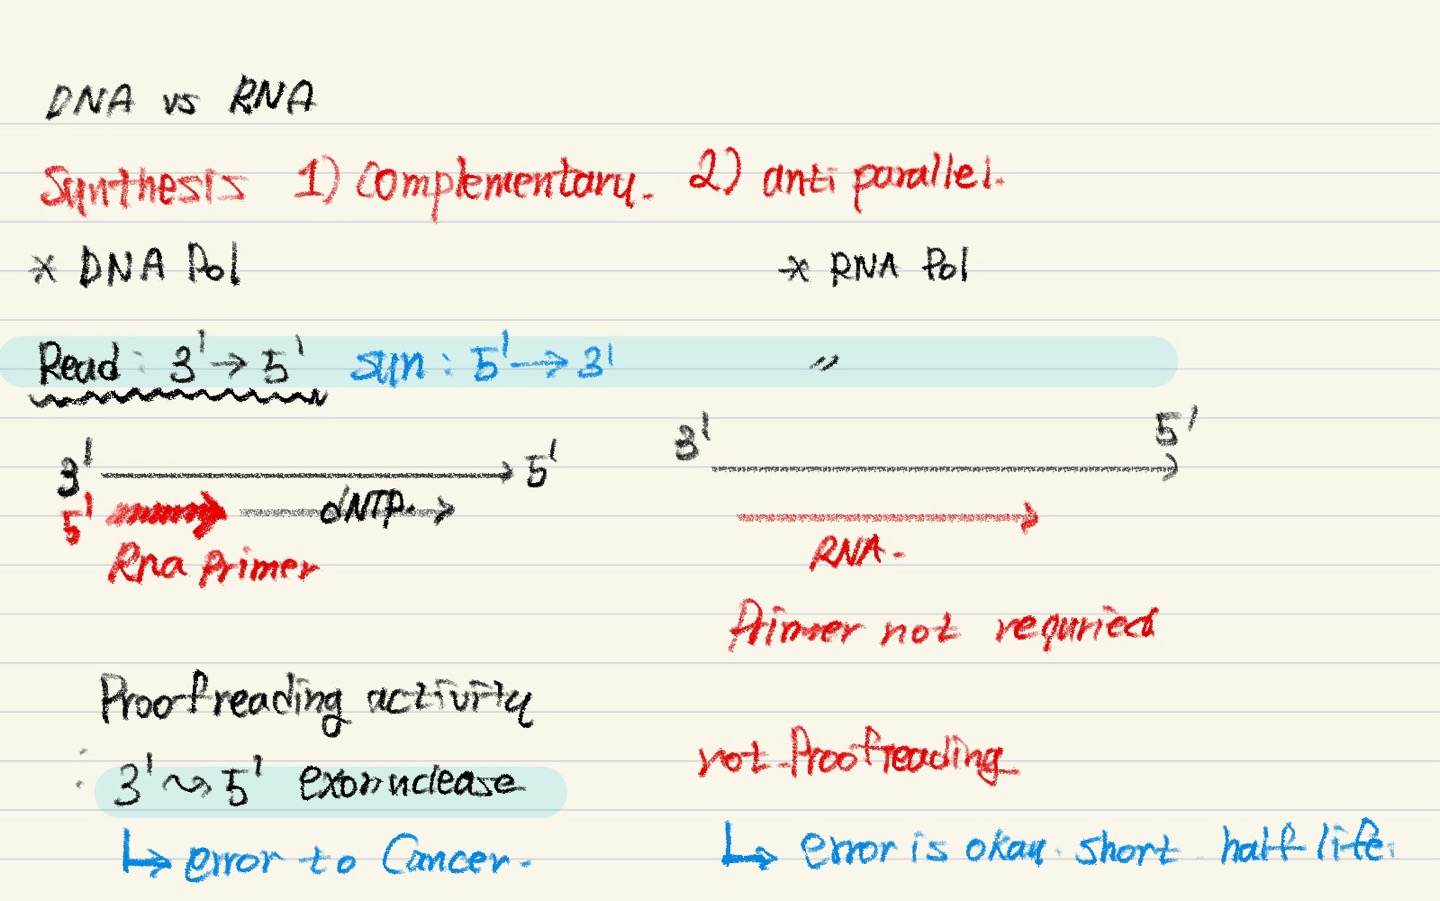 DNA vs RNA
Synthesis 1) Complementary. 2) anti parallel.
* DNA Pol * RNA Pol
Read : 3' → 5' syn : 5' → 3' 〃
3' → 5' 3' → 5'
5' → dNTP. →
Rna Primer RNA.
Primer not requried
Proofreading activity
not Proofreading
: 3' ⤳ 5' exonnclease
↳ error to Cancer. ↳ error is okay. short half life.